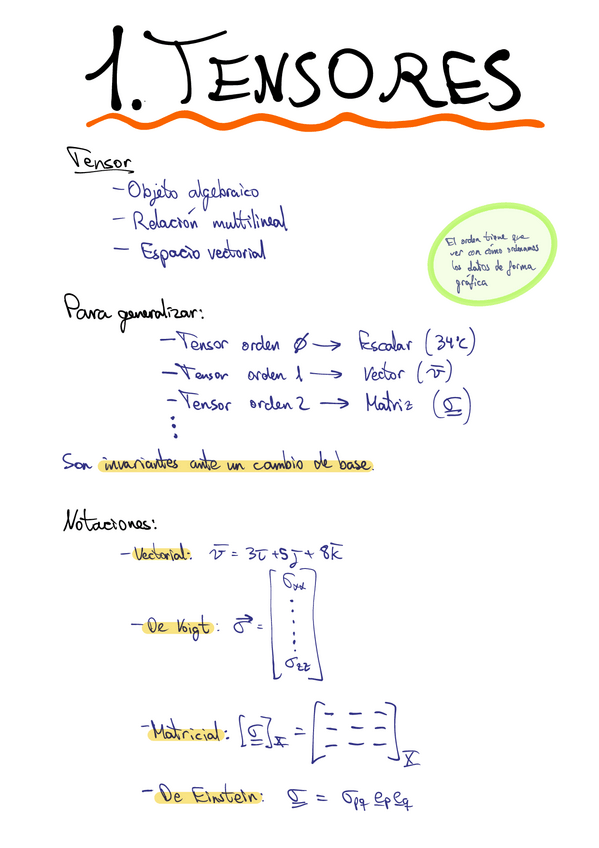 1. TENSORES
Tensor
- Objeto algebraico
- Relación multilineal
- Espacio vectorial
El orden tiene que
ver con cómo ordenamos
los datos de forma
gráfica
Para generalizar:
- Tensor orden 0 → Escalar (34°C)
- Tensor orden 1 → Vector (v̅)
- Tensor orden 2 → Matriz (σ̳)
⋮
Son invariantes ante un cambio de base.
Notaciones:
- Vectorial: v̅ = 3i̅ + 5j̅ + 8k̅
- De Voigt: σ⃗ = [σxx ⋮ σzz]
- Matricial: [σ̳]X̅ = [– – – – – – – – –]X̅
- De Einstein: σ̳ = σpq e̲p e̲q